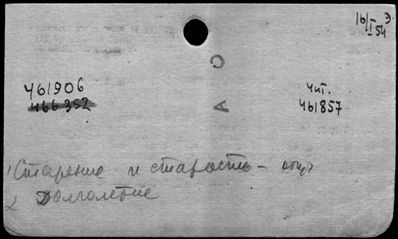 16/I 54 Э
461906
466352
Чит.
461857
О
А
1) Старение и старость — общ
2) Долголетие